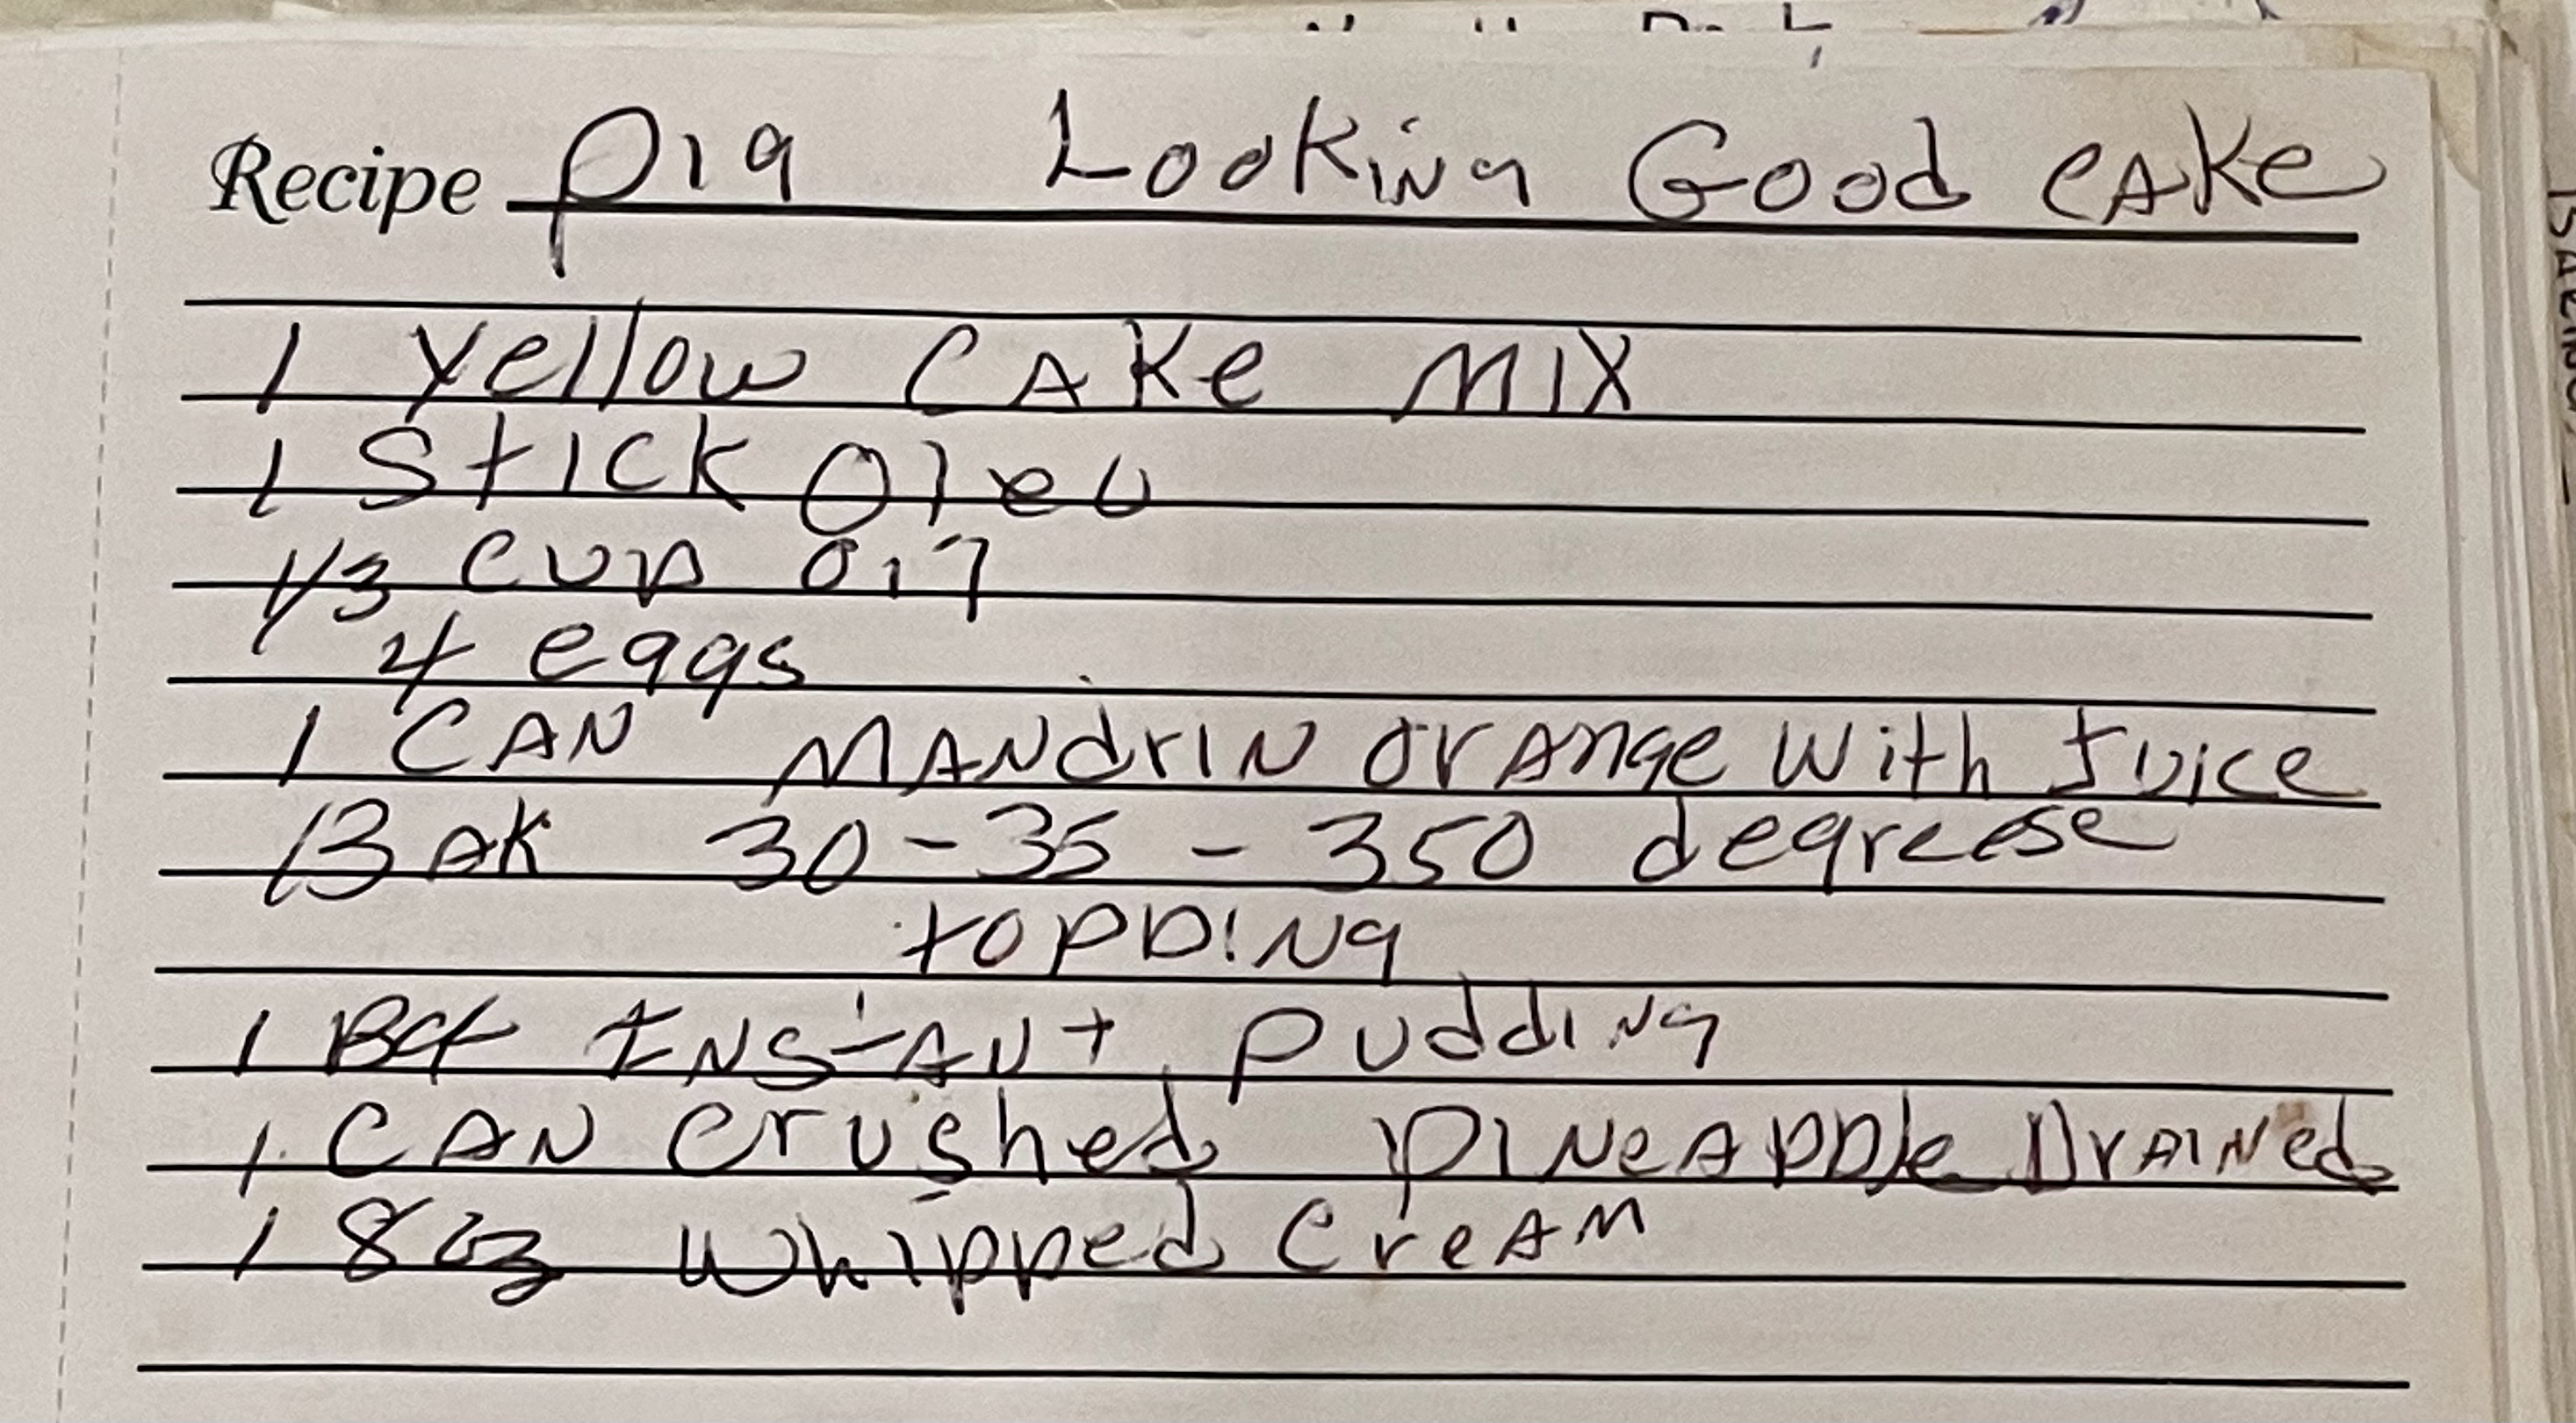 Recipe Pig Looking Good CAKe
1 Yellow CAKe MIX
1 Stick Oleo
1/3 CUP Oil
4 eggs
1 CAN MANdrIN OrAnge With Juice
BAK 30-35 - 350 degreese
tOPPING
1 INSTANT PuddINg
1 CAN Crushed PINeAPPle DrAINed
1 8 oz Whipped CreAM